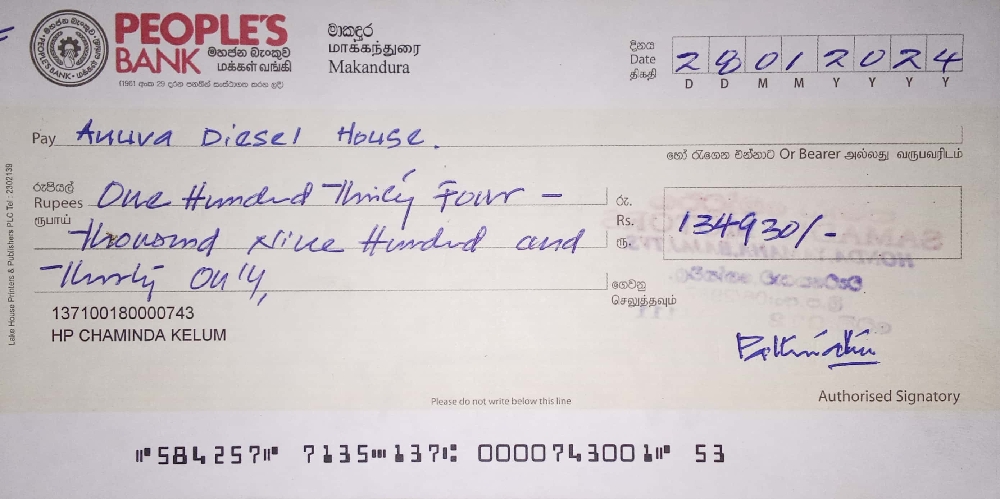 PEOPLE'S
BANK මහජන බැංකුව
மக்கள் வங்கி
(1961 අංක 29 දරන පනතින් සංස්ථාගත කරන ලදි)
මාකඳුර
மாக்கந்துரை
Makandura
දිනය
Date
திகதி
2 8 0 1 2 0 2 4
D D M M Y Y Y Y
Pay Anuva Diesel House.
හෝ රැගෙන එන්නාට Or Bearer அல்லது வருபவரிடம்
රුපියල්
Rupees One Hundred Thirty Four –
ரூபாய்
Thousand Nine Hundred and
Thirty Only,
රු.
Rs. 134930/-
ரூ.
ගෙවනු
செலுத்தவும்
137100180000743
HP CHAMINDA KELUM
Authorised Signatory
Please do not write below this line
⑈584257⑈ 7135⑉137⑆ 0000743001⑈ 53
Lake House Printers & Publishers PLC Tel : 2302139